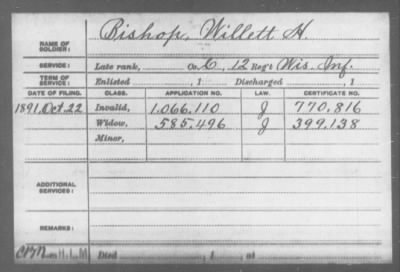 NAME OF SOLDIER: Bishop, Willett H.
SERVICE: Late rank, Co. C, 12 Reg't Wis. Inf.
TERM OF SERVICE: Enlisted , 1 Discharged , 1
DATE OF FILING. CLASS. APPLICATION NO. LAW. CERTIFICATE NO.
1891, Oct. 22 Invalid, 1.066.110 J 770.816
Widow, 585.496 J 399.138
Minor,
ADDITIONAL SERVICES:
REMARKS:
H.L.M Died , 1 , at